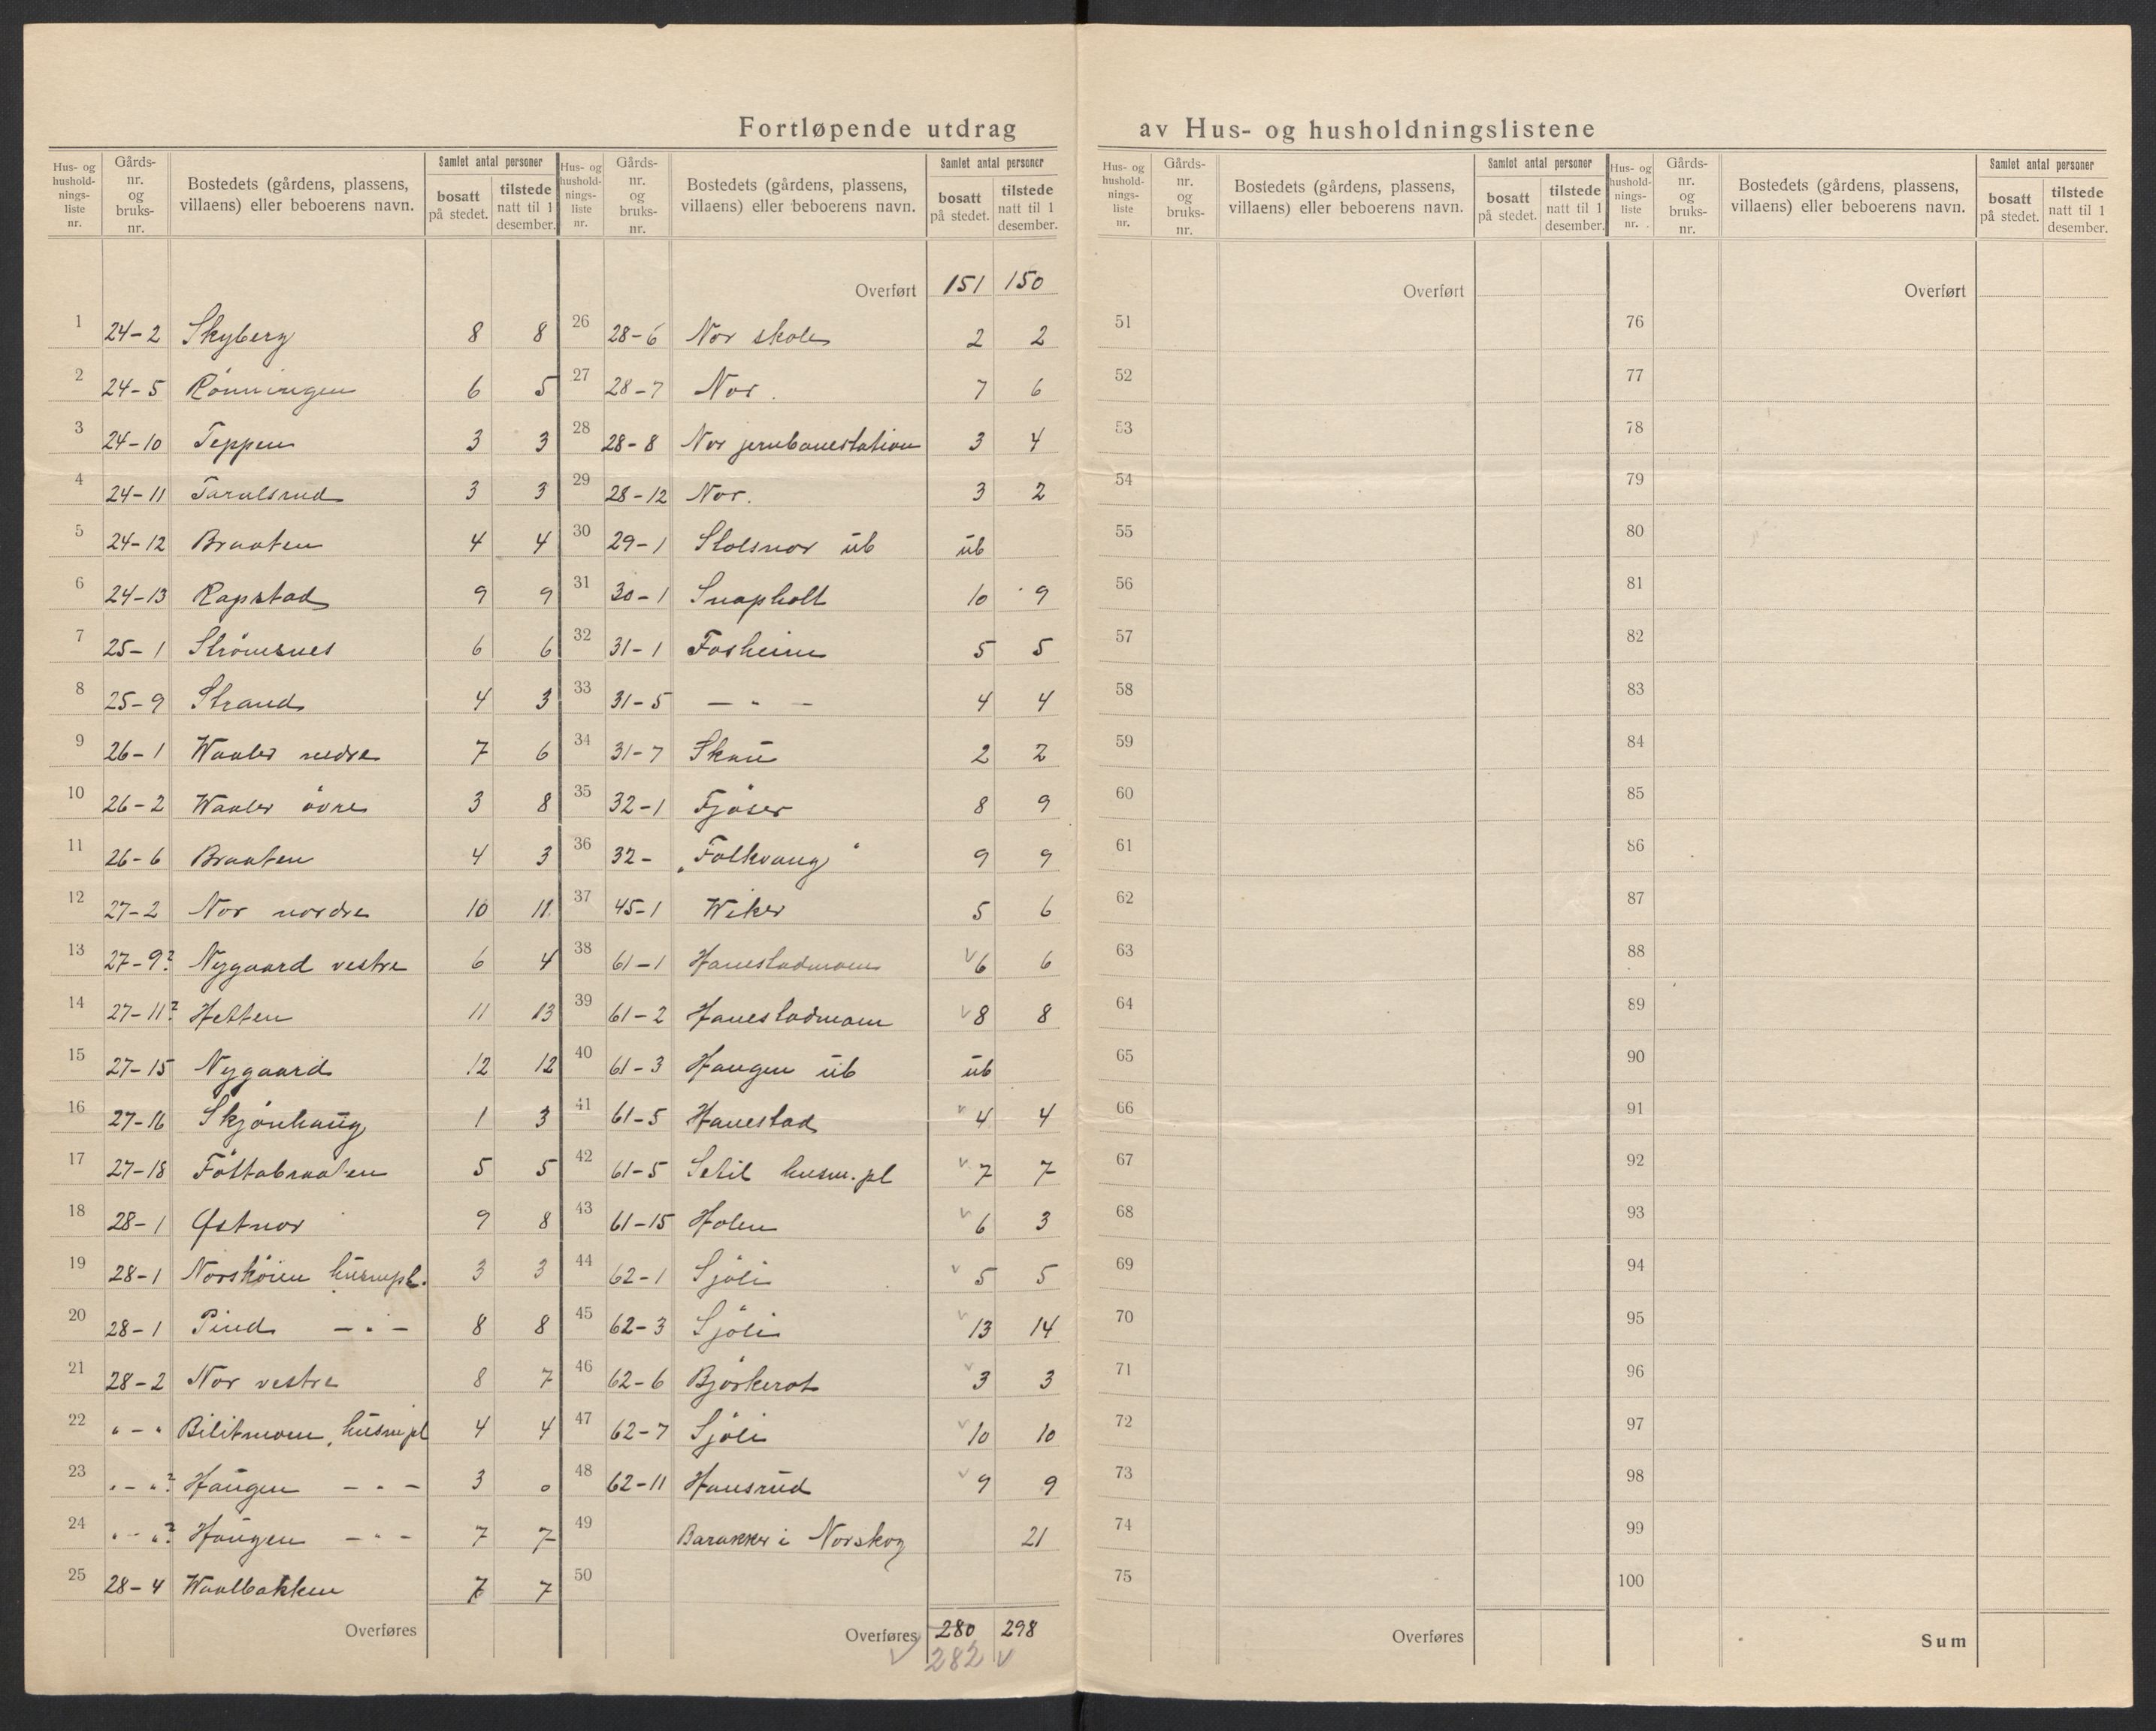 Fortløpende utdrag av Hus- og husholdningslistene
Hus- og hushold-nings-liste nr. Gårds-nr. og bruks-nr. Bostedets (gårdens, plassens, villaens) eller beboerens navn. Samlet antal personer bosatt på stedet. tilstede natt til 1 desember.
1 24-2 Skyberg 8 8
2 24-5 Rönningen 6 5
3 24-10 Teppen 3 3
4 24-11 Taralsrud 3 3
5 24-12 Braaten 4 4
6 24-13 Rapstad 9 9
7 25-1 Strömsnes 6 6
8 25-9 Strand 4 3
9 26-1 Waaler nedre 7 6
10 26-2 Waaler övre 3 8
11 26-6 Braaten 4 3
12 27-2 Nor nordre 10 11
13 27-9? Nygaard vestre 6 4
14 27-11? Hetten 11 13
15 27-15 Nygaard 12 12
16 27-16 Skjönhaug 1 3
17 27-18 Föttabraaten 5 5
18 28-1 Østnor 9 8
19 28-1 Norskóien husmpl. 3 3
20 28-1 Pind - " - 8 8
21 28-2 Nor vestre 8 7
22 " - " Bilitmoen, husmpl 4 4
23 " - "? Haugen - " - 3 0
24 " - "? Haugen - " - 7 7
25 28-4 Waalbakken 7 7
Overføres
Hus- og hushold-nings-liste nr. Gårds-nr. og bruks-nr. Bostedets (gårdens, plassens, villaens) eller beboerens navn. Samlet antal personer bosatt på stedet. tilstede natt til 1 desember.
Overført 151 150
26 28-6 Nor skole 2 2
27 28-7 Nor. 7 6
28 28-8 Nor jernbanestation 3 4
29 28-12 Nor. 3 2
30 29-1 Stolsnor üb üb
31 30-1 Snapholt 10 9
32 31-1 Fosheim 5 5
33 31-5 - " - 4 4
34 31-7 Skau 2 2
35 32-1 Fjöser 8 9
36 32- "Folkvang" 9 9
37 45-1 Wiker 5 6
38 61-1 Hanestadmoen 6 6
39 61-2 Hanestadmoen 8 8
40 61-3 Haugen üb üb
41 61-5 Hanestad 4 4
42 61-5 Setil husm.pl 7 7
43 61-15 Holen 6 3
44 62-1 Sjöli 5 5
45 62-3 Sjöli 13 14
46 62-6 Björkerot 3 3
47 62-7 Sjöli 10 10
48 62-11 Hansrud 9 9
49 Barakker i Norskog 21
50
Overføres 280 298
282
Hus- og hushold-nings-liste nr. Gårds-nr. og bruks-nr. Bostedets (gårdens, plassens, villaens) eller beboerens navn. Samlet antal personer bosatt på stedet. tilstede natt til 1 desember.
Overført
51
52
53
54
55
56
57
58
59
60
61
62
63
64
65
66
67
68
69
70
71
72
73
74
75
Overføres
Hus- og hushold-nings-liste nr. Gårds-nr. og bruks-nr. Bostedets (gårdens, plassens, villaens) eller beboerens navn. Samlet antal personer bosatt på stedet. tilstede natt til 1 desember.
Overført
76
77
78
79
80
81
82
83
84
85
86
87
88
89
90
91
92
93
94
95
96
97
98
99
100
Sum